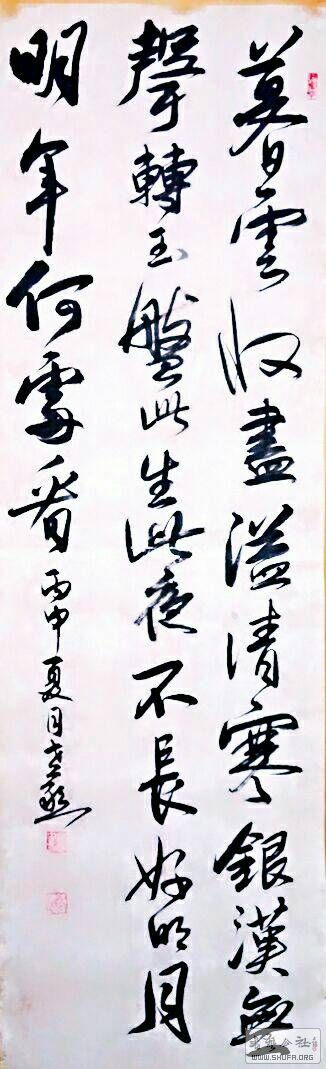 暮雲收盡溢清寒銀漢無
聲轉玉盤此生此夜不長好明月
明年何處看丙申夏月
WWW.SHUFA.ORG